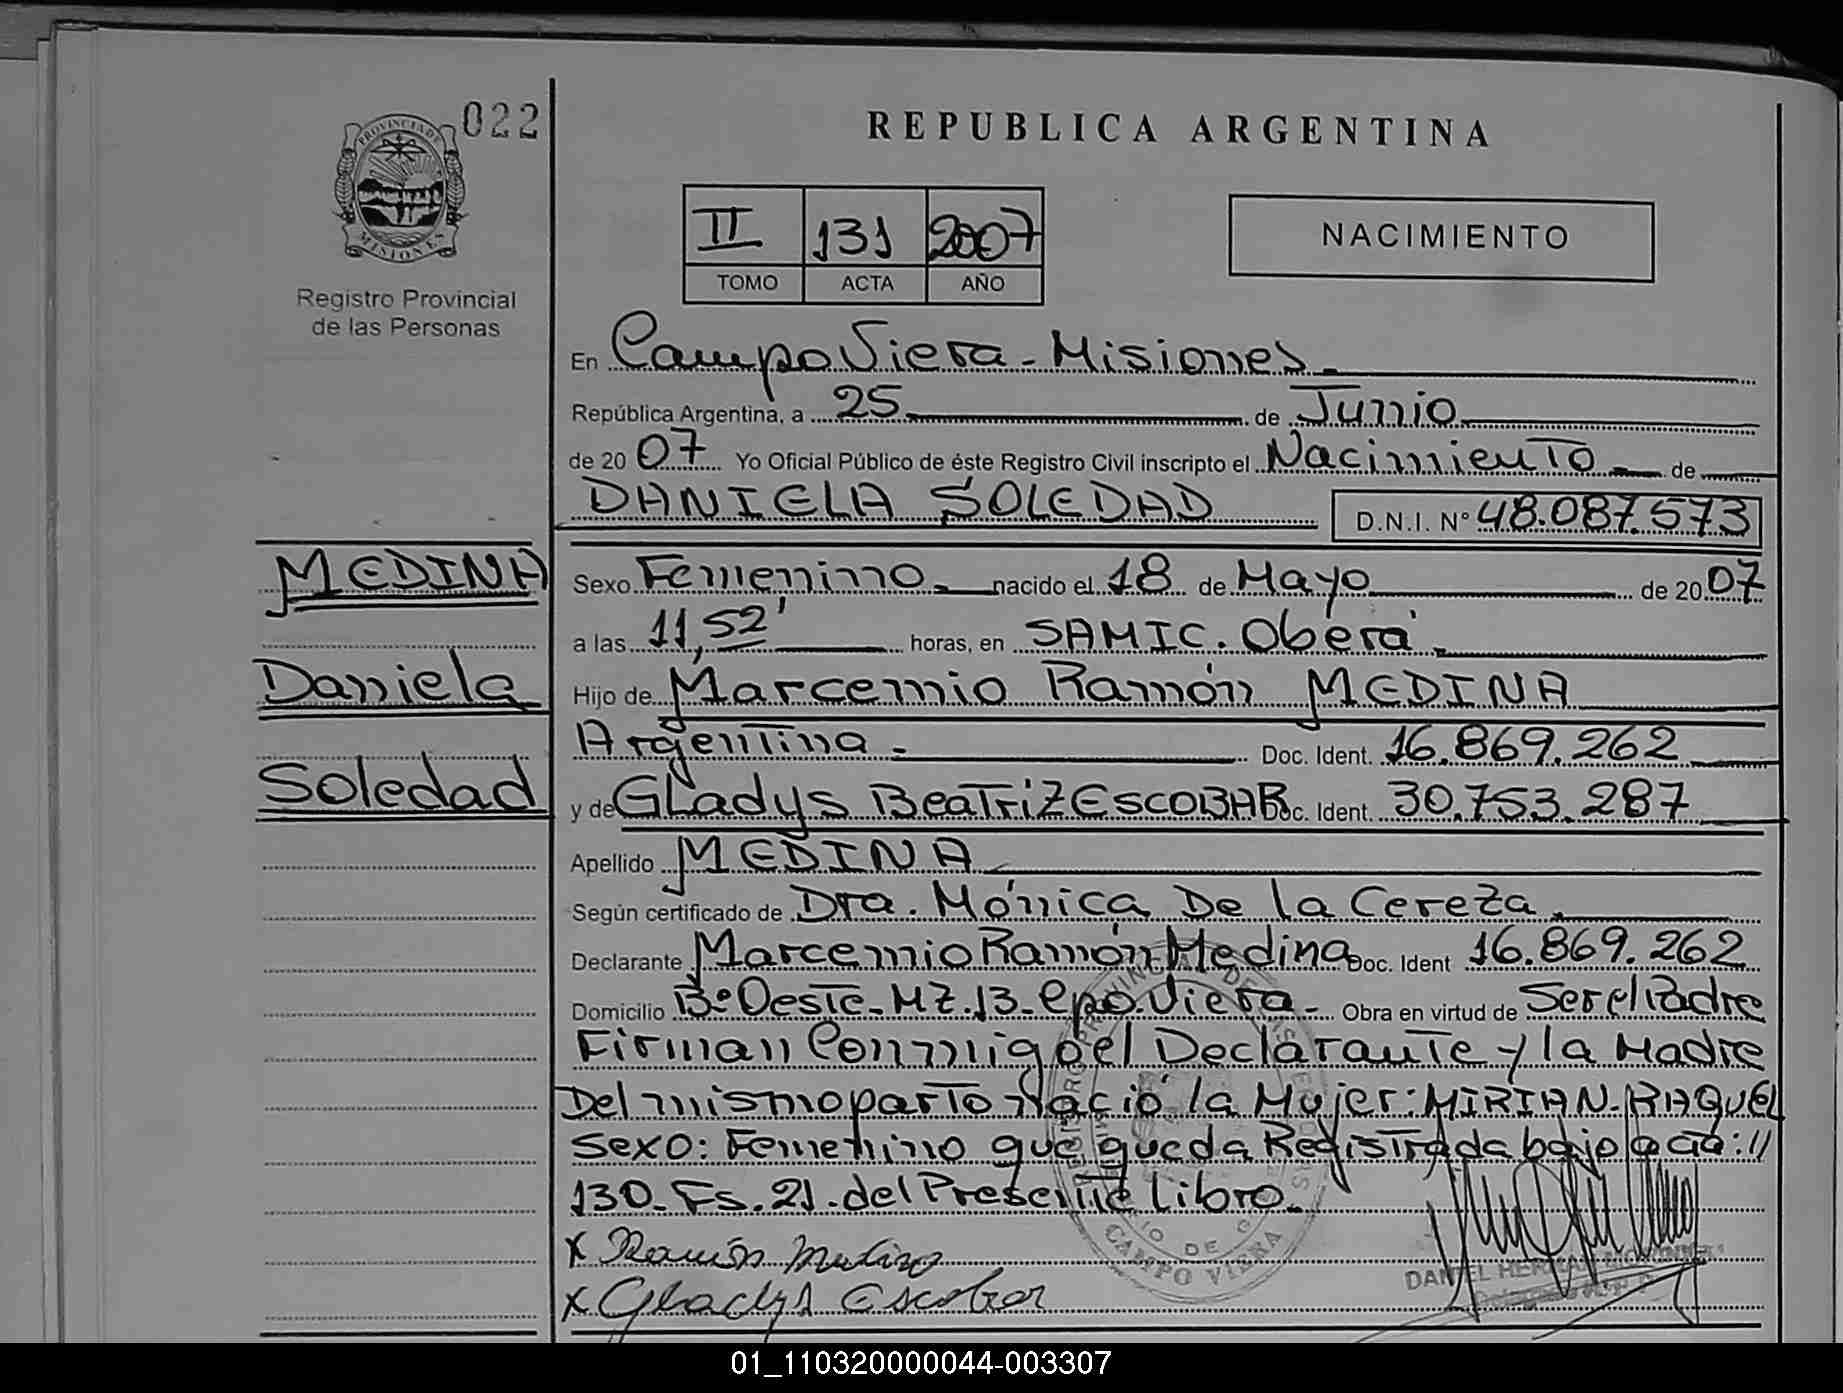 022
PROVINCIA DE
MISIONES
Registro Provincial
de las Personas
REPUBLICA ARGENTINA
II 131 2007
TOMO ACTA AÑO
NACIMIENTO
En Campo Viera - Misiones.
República Argentina, a 25 de Junio
de 2007 Yo Oficial Público de éste Registro Civil inscripto el Nacimiento de
DANIELA SOLEDAD D.N.I. N° 48.087.573
MEDINA
Daniela
Soledad
Sexo Femenino nacido el 18 de Mayo de 2007
a las 11,52' horas, en SAMIC. Oberá.
Hijo de Marcemio Ramón MEDINA
Argentina - Doc. Ident. 16.869.262
y de Gladys Beatriz ESCOBAR Doc. Ident. 30.753.287
Apellido MEDINA
Según certificado de Dra. Mónica De la Cereza.
Declarante Marcemio Ramón Medina Doc. Ident 16.869.262
Domicilio B° Oeste - MZ. 13 - Cpo. Viera - Obra en virtud de Ser el Padre
Firman Conmigo el Declarante y la Madre
Del mismo parto Nació la Mujer: MIRIAN - RAQUEL
sexo: Femenino que queda Registrada bajo acta: //
130 - Fs. 21. del Presente Libro.
x Ramón Medina
x Gladys Escobar
CAMPO VIERA
DANIEL HERNAN
01_110320000044-003307